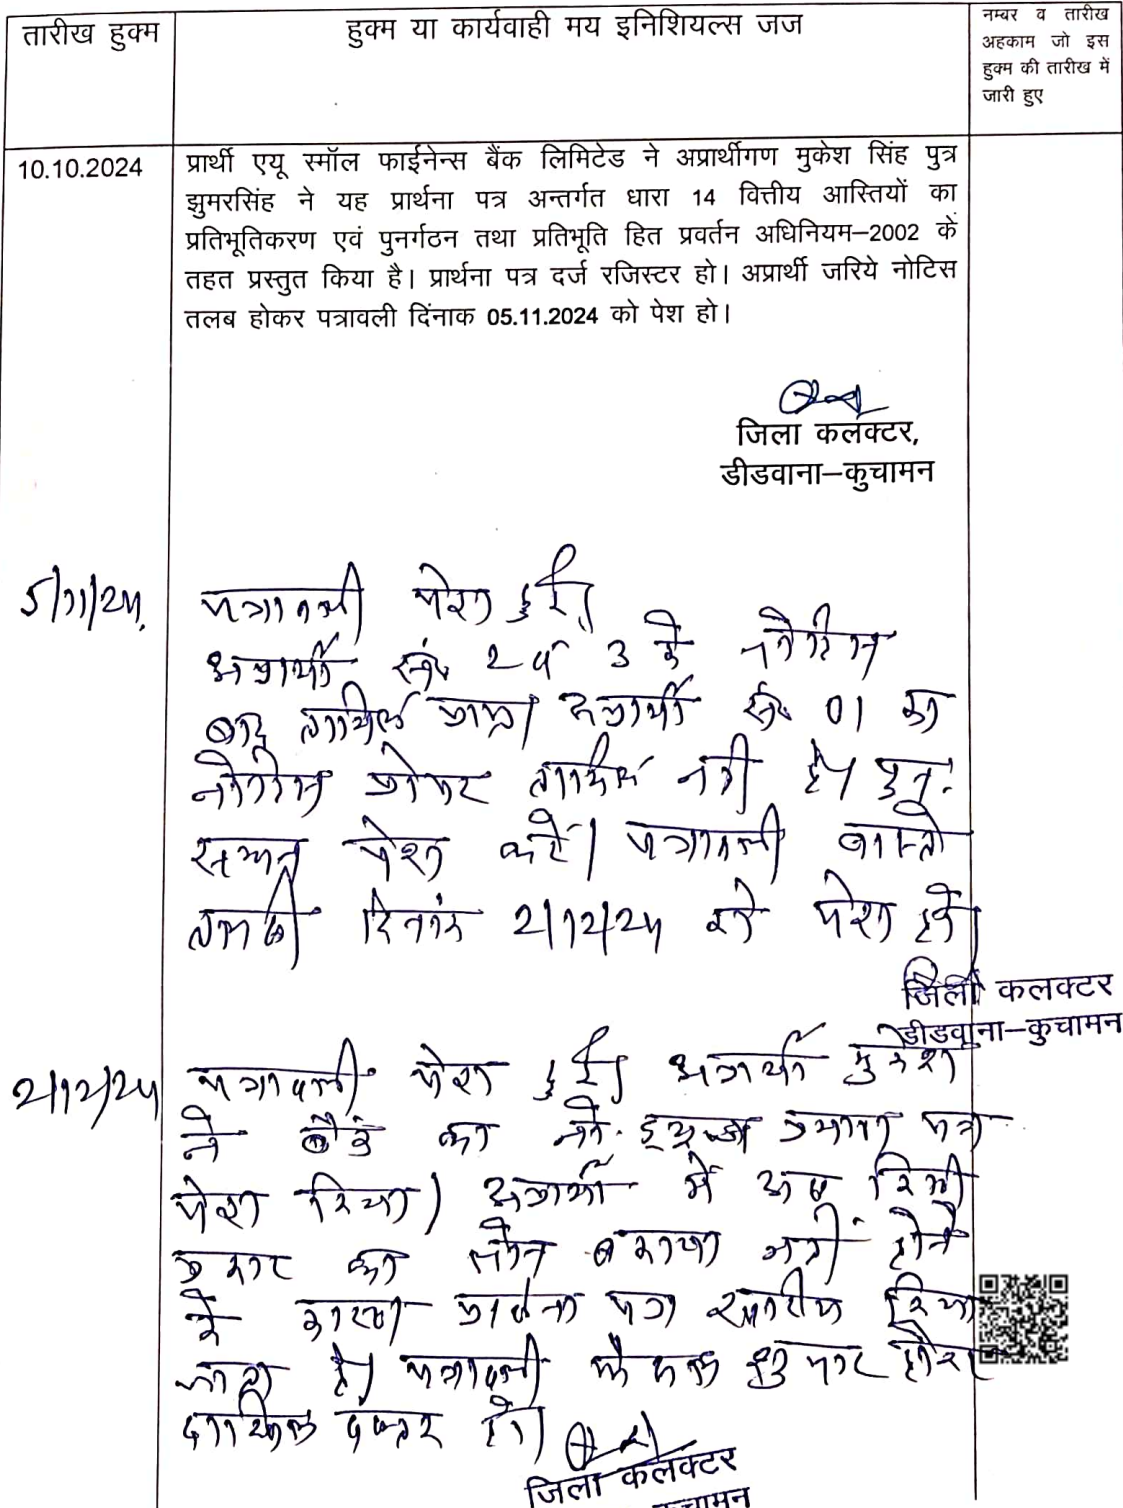 तारीख हुक्म
हुक्म या कार्यवाही मय इनिशियल्स जज
नम्बर व तारीख
अहकाम जो इस
हुक्म की तारीख में
जारी हुए
10.10.2024
प्रार्थी एयू स्मॉल फाईनेन्स बैंक लिमिटेड ने अप्रार्थीगण मुकेश सिंह पुत्र
झुमरसिंह ने यह प्रार्थना पत्र अन्तर्गत धारा 14 वित्तीय आस्तियों का
प्रतिभूतिकरण एवं पुनर्गठन तथा प्रतिभूति हित प्रवर्तन अधिनियम–2002 के
तहत प्रस्तुत किया है। प्रार्थना पत्र दर्ज रजिस्टर हो। अप्रार्थी जरिये नोटिस
तलब होकर पत्रावली दिंनाक 05.11.2024 को पेश हो।
जिला कलक्टर,
डीडवाना–कुचामन
5/11/24
पत्रावली पेश हुई।
अप्रार्थी सं. 2 व 3 के नोटिस
बाद तामिल प्राप्त। अप्रार्थी सं. 01 का
नोटिस होकर तामिल नहीं है। पुन:
पेश करें। पत्रावली वास्ते
तलबी दिनांक 2/12/24 को पेश हो।
जिला कलक्टर
डीडवाना–कुचामन
2/12/24
पत्रावली पेश हुई। अप्रार्थी मुकेश
ने बैंक का नो. ड्यूज प्रमाण पत्र
पेश किया। अप्रार्थी में अब किसी
प्रकार का लोन बकाया नहीं होने
के कारण प्रार्थना पत्र खारीज किया
जाता है। पत्रावली फैसल शुमार होकर
दाखिल दफ्तर हो।
जिला कलक्टर
कुचामन